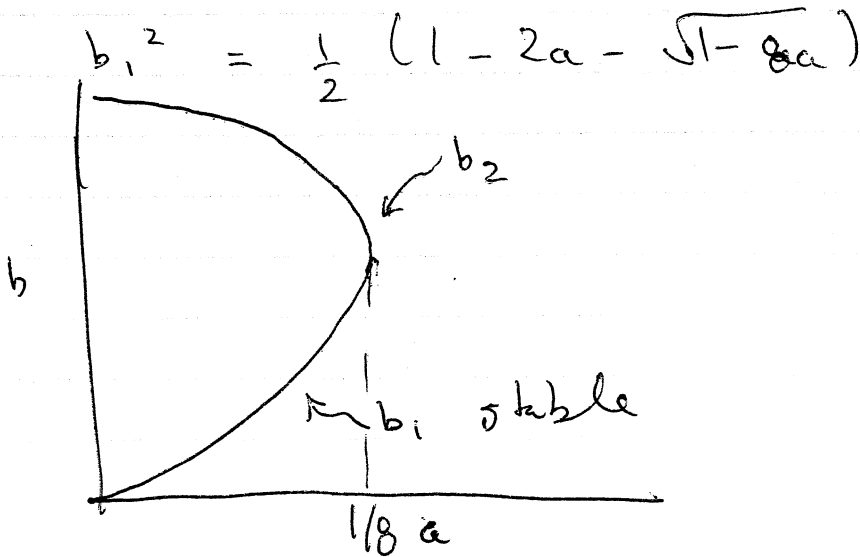 b₁² = 1/2 (1 - 2a - √1-8a)
b₂
b
b₁ stable
1/8 a